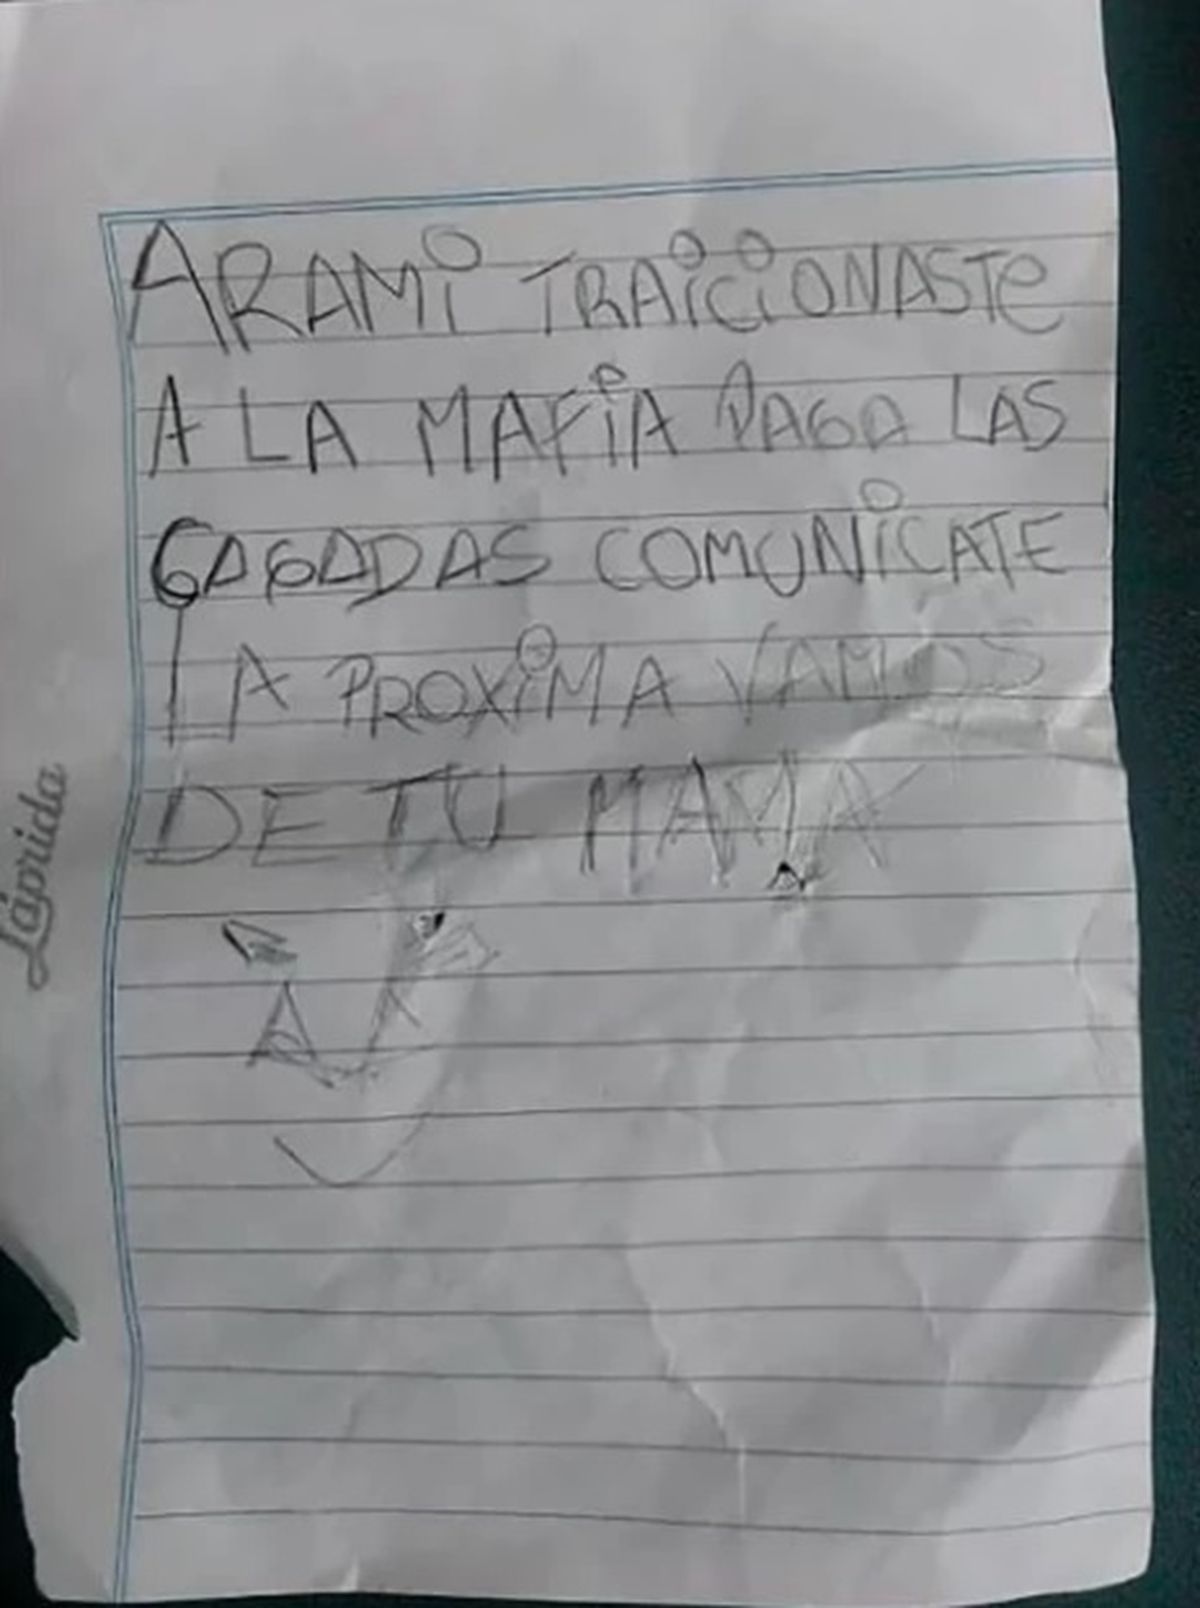 ARAMi TRAiCiONASTe
A LA MAFiA PAGA LAS
CAGADAS COMUNiCATE
LA PROXiMA VAMOS
DE TU MAMA
Láprida